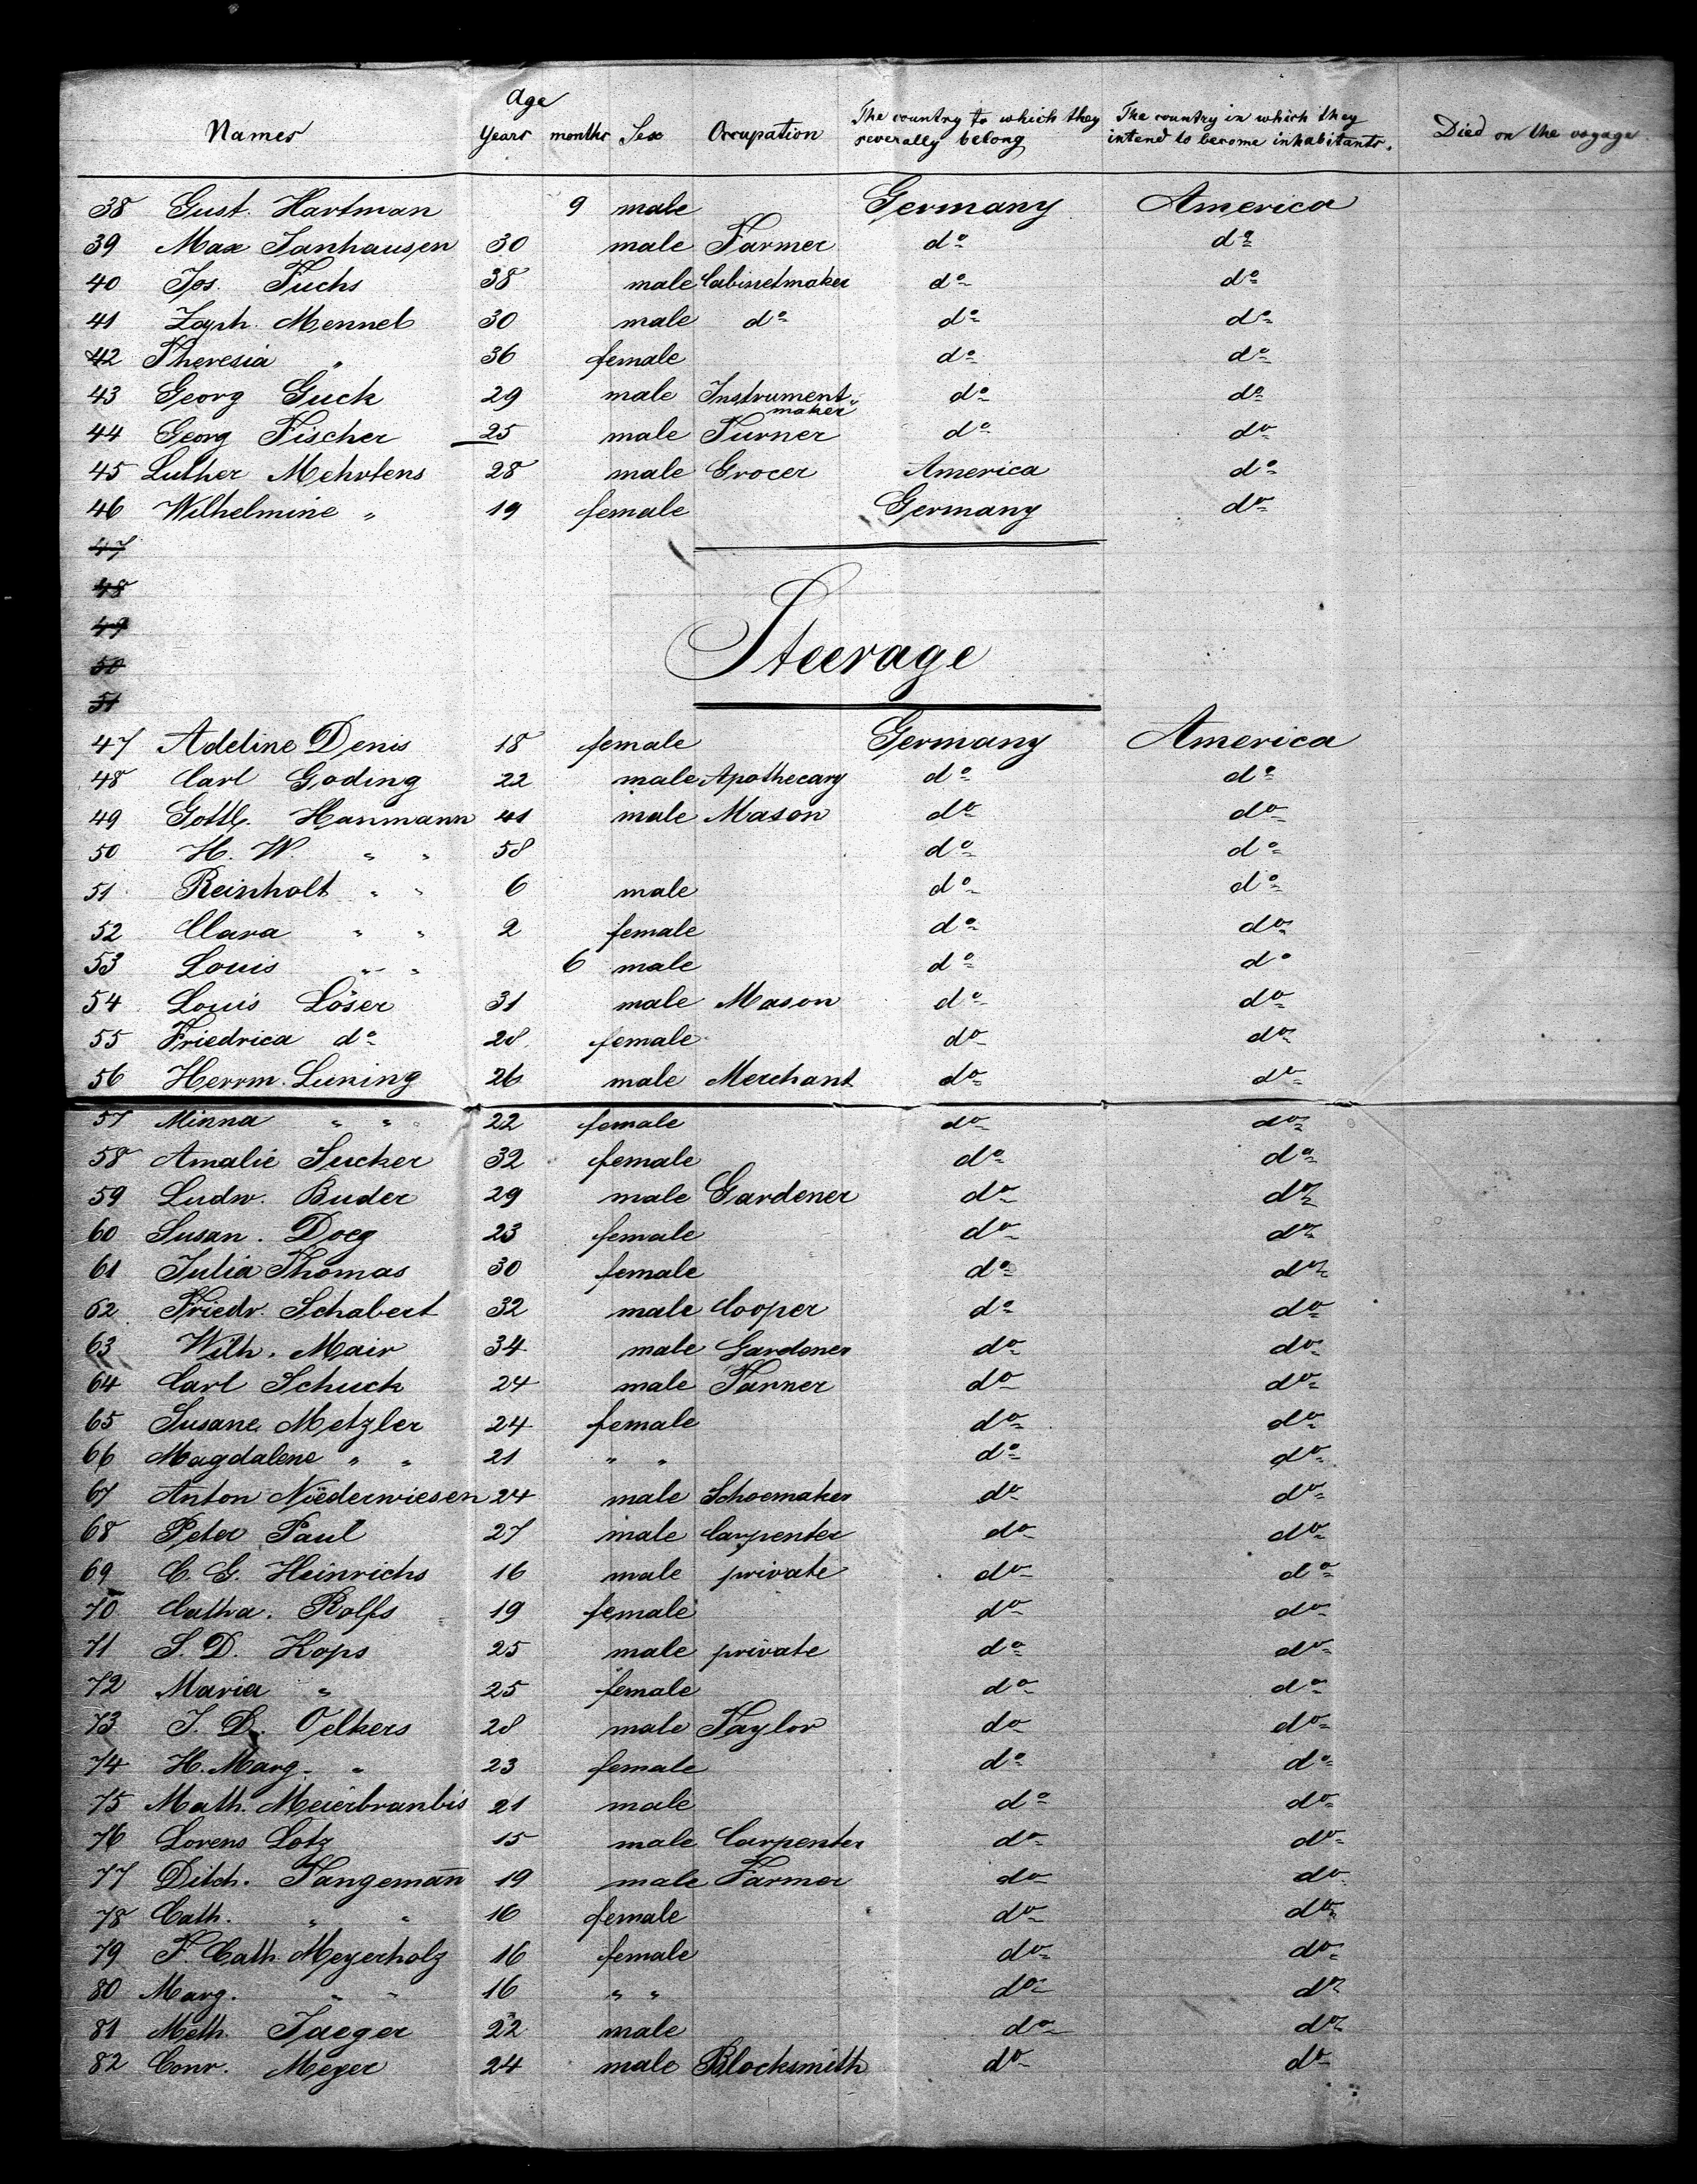 Age
Names Years months Sex Occupation The country to which they severally belong The country in which they intend to become inhabitants. Died on the voyage
38 Gust. Hartman 9 male Germany America
39 Max Janhausen 30 male Farmer do do
40 Jos. Fuchs 38 male Cabinetmaker do do
41 Mennel 30 male do do do
42 Theresia " 36 female do do
43 Georg Guck 29 male Instrument-maker do do
44 Georg Fischer 25 male Turner do do
45 Luther Mehrtens 28 male Grocer America do
46 Wilhelmine " 19 female Germany do
47
48
49
50
51
Steerage
47 Adeline Denis 18 female Germany America
48 Carl Goding 22 male Apothecary do do
49 Gottl. Hanmann 41 male Mason do do
50 H. W. " " 58 do do
51 Reinholt " " 6 male do do
52 Clara " " 2 female do do
53 Louis " " 6 male do do
54 Louis Löser 31 male Mason do do
55 Friedrica do 28 female do do
56 Herrm. Luning 26 male Merchant do do
57 Minna " " 22 female do do
58 Amalie Sucker 32 female do do
59 Ludw. Buder 29 male Gardener do do
60 Susan. Doeg 23 female do do
61 Julia Thomas 30 female do do
62 Friedr. Schabert 32 male Cooper do do
63 Wilh. Mair 34 male Gardener do do
64 Carl Schuck 24 male Tanner do do
65 Susane Metzler 24 female do do
66 Magdalene " " 21 " " do do
67 Anton Niederwiesen 24 male Schoemaker do do
68 Peter Paul 27 male Carpenter do do
69 C. G. Heinrichs 16 male private do do
70 Catha. Rolfs 19 female do do
71 S. D. Kops 25 male private do do
72 Maria " 25 female do do
73 J. D. Oelkers 28 male Taylor do do
74 H. Marg. " 23 female do do
75 Math. Meierbranbis 21 male do do
76 Lorens Lotz 15 male Carpenter do do
77 Ditch. Tangemañ 19 male Farmer do do
78 Cath. " " 16 female do do
79 F. Cath. Meyerholz 16 female do do
80 Marg. " " 16 " " do do
81 Meth. Jaeger 22 male do do
82 Conr. Meyer 24 male Blocksmith do do